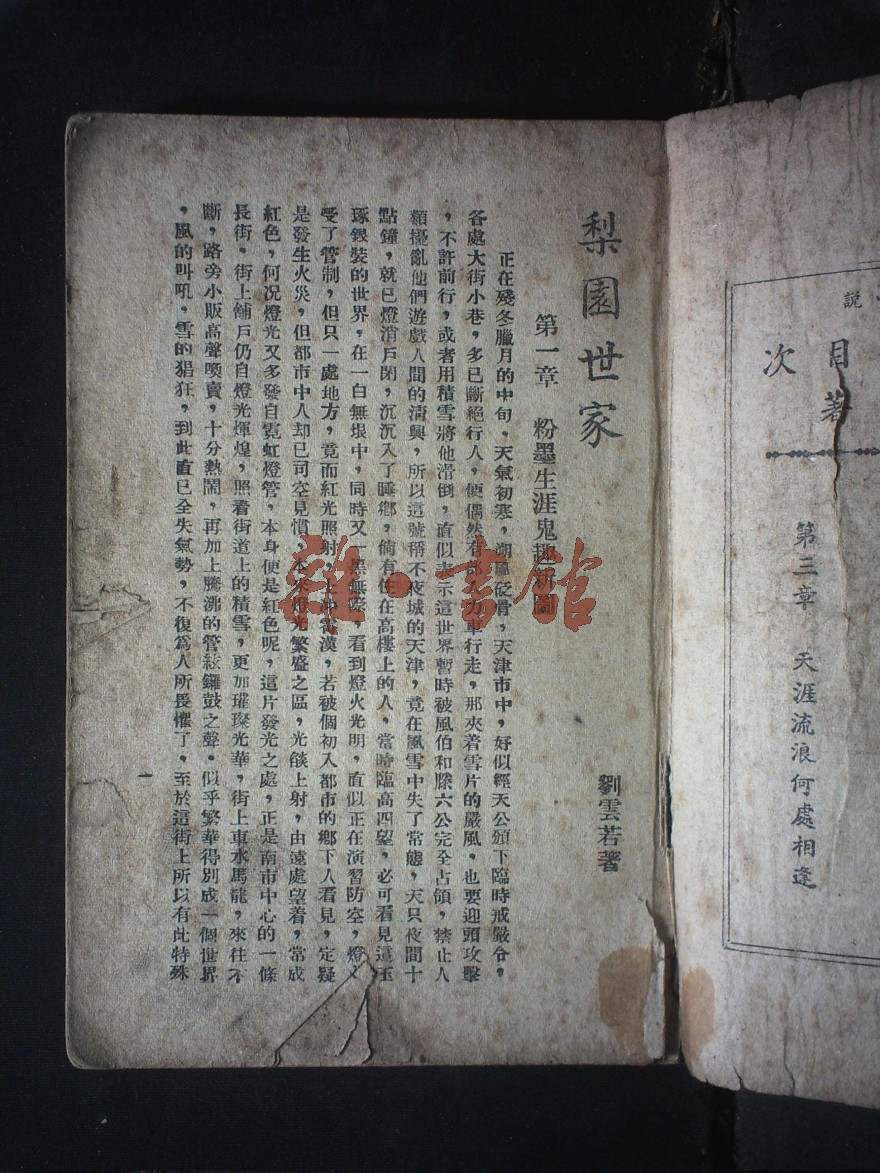 說
目次
著
第三章　天涯流浪何處相逢
梨園世家
劉雲若著
第一章　粉墨生涯鬼趣新圖
正在殘冬臘月的中旬，天氣初寒，朔風砭骨，天津市中，好似經天公頒下臨時戒嚴令，
各處大街小巷，多已斷絕行人，便偶然有人力車行走，那夾着雪片的嚴風，也要迎頭攻擊
，不許前行，或者用積雪將他滑倒，直似表示這世界暫時被風伯和滕六公完全占領，禁止人
類擾亂他們遊戲人間的清興，所以這號稱不夜城的天津，竟在風雪中失了常態，天只夜間十
點鐘，就已燈消戶閉，沉沉入了睡鄉，倘有住在高樓上的人，當時臨高四望，必可看見這玉
琢銀裝的世界，在一白無垠中，同時又一黑無際，看到燈火光明，直似正在演習防空，燈火
受了管制，但只一處地方，竟而紅光照射，上沖霄漢，若被個初入都市的鄉下人看見，定疑
是發生火災，但都市中人却已司空見慣，本來燈光繁盛之區，光燄上射，由遠處望着，常成
紅色，何况燈光又多發自霓虹燈管，本身便是紅色呢，這片發光之處，正是南市中心的一條
長街，街上舖戶仍自燈光煇煌，照着街道上的積雪，更加璀璨光華，街上車水馬龍，來往不
斷，路旁小販高聲喚賣，十分熱鬧，再加上騰沸的管絃鑼鼓之聲，似乎繁華得別成一個世界
，風的叫吼，雪的猖狂，到此直已全失氣勢，不復爲人所畏懼了，至於這街上所以有此特殊
雜·書館